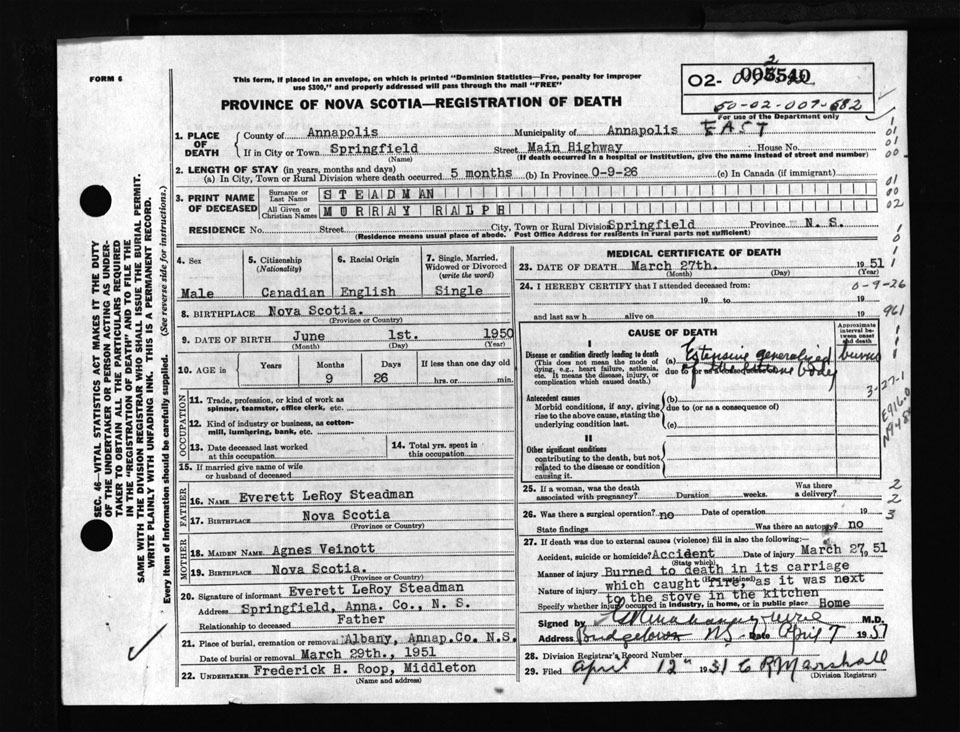 FORM 6
This form, if placed in an envelope, on which is printed "Dominion Statistics—Free, penalty for improper
use $300," and properly addressed will pass through the mail "FREE"
O2-
50-02-007-682
For use of the Department only
PROVINCE OF NOVA SCOTIA—REGISTRATION OF DEATH
1. PLACE OF DEATH
County of Annapolis Municipality of Annapolis EAST
If in City or Town Springfield Street Main Highway House No.
(Name) (If death occurred in a hospital or institution, give the name instead of street and number)
2. LENGTH OF STAY (in years, months and days)
(a) In City, Town or Rural Division where death occurred 5 months (b) In Province 0-9-26 (c) In Canada (if immigrant)
3. PRINT NAME OF DECEASED
Surname or Last Name STEADMAN
All Given or Christian Names MURRAY RALPH
RESIDENCE No. Street City, Town or Rural Division Springfield Province N. S.
(Residence means usual place of abode. Post Office Address for residents in rural parts not sufficient)
4. Sex
Male
5. Citizenship (Nationality)
Canadian
6. Racial Origin
English
7. Single, Married, Widowed or Divorced (write the word)
Single
8. BIRTHPLACE Nova Scotia.
(Province or Country)
9. DATE OF BIRTH June 1st. 1950
(Month) (Day) (Year)
10. AGE in Years Months Days If less than one day old
9 26 hrs. or min.
OCCUPATION
11. Trade, profession, or kind of work as
spinner, teamster, office clerk, etc.
12. Kind of industry or business, as cotton-
mill, lumbering, bank, etc.
13. Date deceased last worked
at this occupation
14. Total yrs. spent in
this occupation
15. If married give name of wife
or husband of deceased
FATHER
16. NAME Everett LeRoy Steadman
17. BIRTHPLACE Nova Scotia
(Province or Country)
MOTHER
18. MAIDEN NAME Agnes Veinott
19. BIRTHPLACE Nova Scotia.
(Province or Country)
20. Signature of informant Everett LeRoy Steadman
Address Springfield, Anna. Co., N. S.
Relationship to deceased Father
21. Place of burial, cremation or removal Albany, Annap.Co. N.S.
Date of burial or removal March 29th., 1951
22. UNDERTAKER Frederick H. Roop, Middleton
(Name and address)
MEDICAL CERTIFICATE OF DEATH
23. DATE OF DEATH March 27th. 1951
(Month) (Day) (Year)
24. I HEREBY CERTIFY that I attended deceased from:
0-9-26
19 to 19
and last saw h alive on 19
961
CAUSE OF DEATH
Approximate interval between onset and death
I
Disease or condition directly leading to death
(This does not mean the mode of
dying, e.g., heart failure, asthenia,
etc. It means the disease, injury, or
complication which caused death.)
(a) Extensive generalized burns
due to
body
Antecedent causes
Morbid conditions, if any, giving
rise to the above cause, stating the
underlying condition last.
(b)
due to (or as a consequence of)
(c)
3-27-1
E916.0
N948
II
Other significant conditions
contributing to the death, but not
related to the disease or condition
causing it.
25. If a woman, was the death
associated with pregnancy? Duration weeks. Was there a delivery?
26. Was there a surgical operation? no Date of operation 19
State findings Was there an autopsy? no
27. If death was due to external causes (violence) fill in also the following:—
Accident, suicide or homicide? Accident Date of injury March 27, 1951
(State which)
Manner of injury Burned to death in its carriage
(How sustained)
Nature of injury which caught fire, as it was next
to the stove in the kitchen
Specify whether injury occurred in industry, in home, or in public place Home
Signed by M.D.
Address Bridgetown NS Date April 7 1951
28. Division Registrar's Record Number
29. Filed April 12th 1951 C R Marshall
(Division Registrar)
SEC. 46—VITAL STATISTICS ACT MAKES IT THE DUTY
OF THE UNDERTAKER OR PERSON ACTING AS UNDER-
TAKER TO OBTAIN ALL THE PARTICULARS REQUIRED
IN THE "REGISTRATION OF DEATH" AND TO FILE THE
SAME WITH THE DIVISION REGISTRAR WHO SHALL ISSUE THE BURIAL PERMIT.
WRITE PLAINLY WITH UNFADING INK. THIS IS A PERMANENT RECORD.
Every item of information should be carefully supplied. (See reverse side for instructions.)